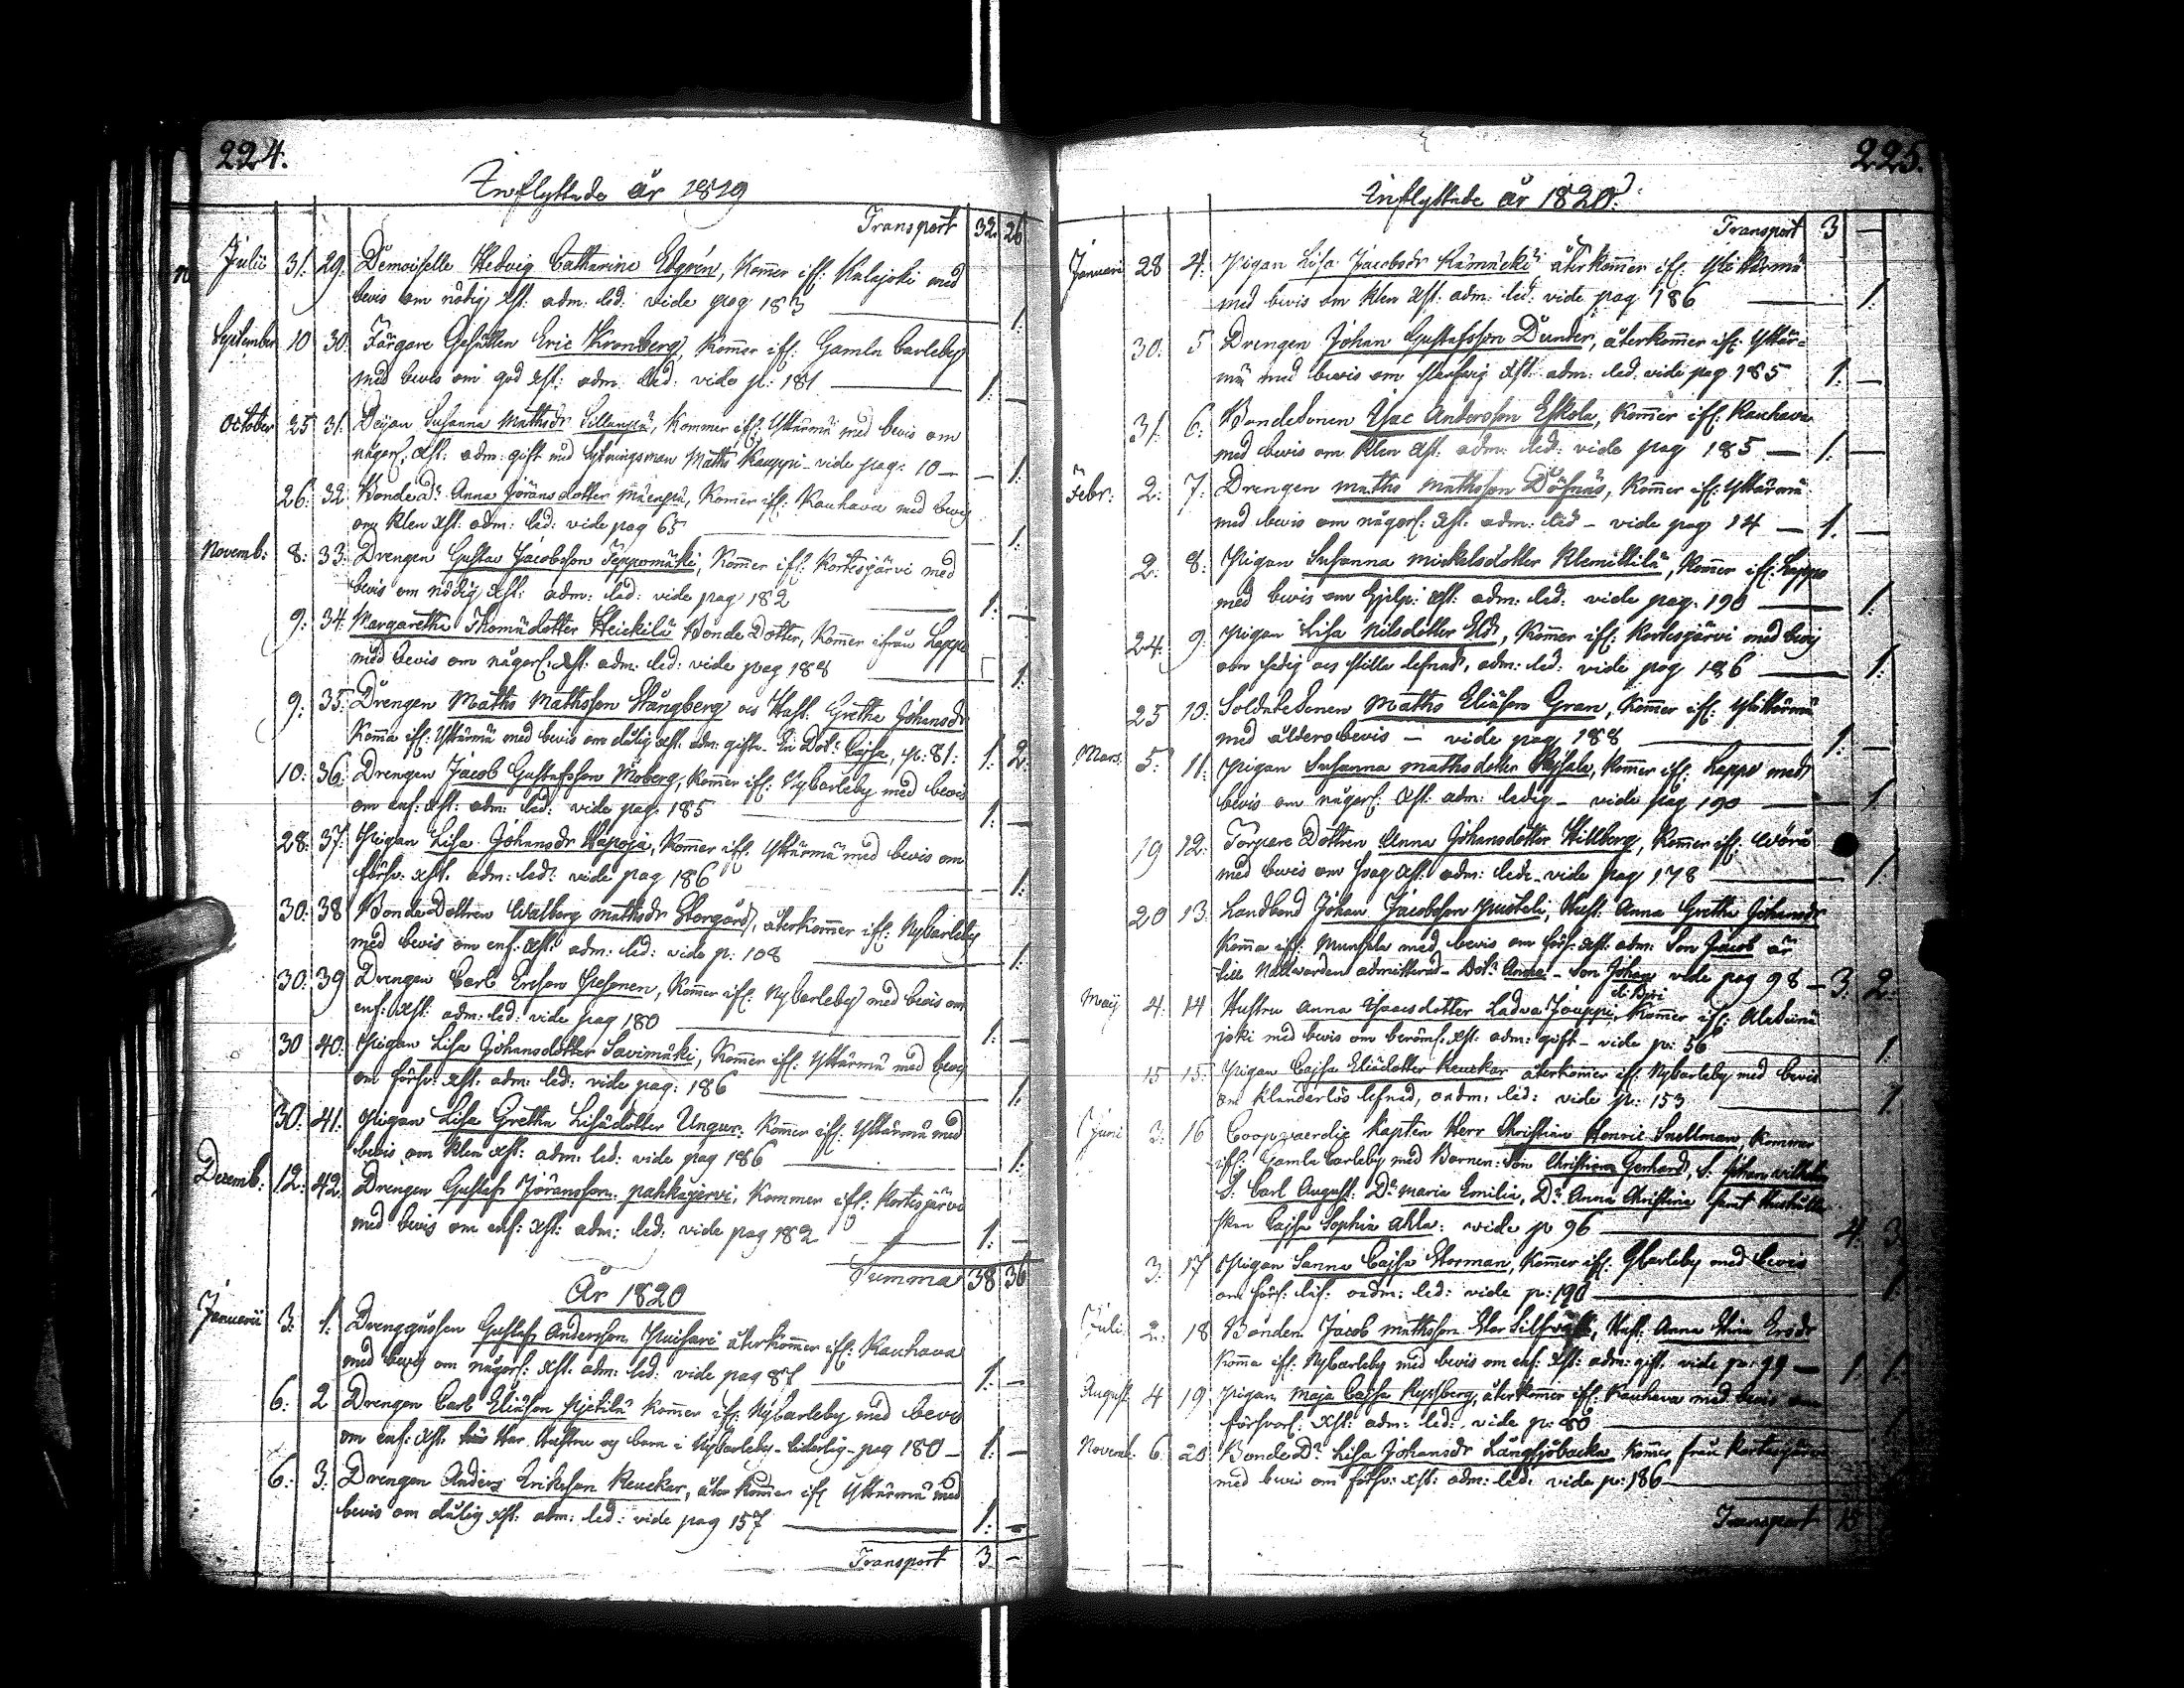 224.
Inflyttade år 1819
Transport 32. 26
Julii 31. 29. Demoiselle Hedvig Catharine Edgrén, Kom̅er ifr: Kalajoki med
bevis om nödig Xst: adm: led: vide pag 183 1.
September 10 30. Färgare Gesällen Eric Kronberg, Kom̅er ifr: Gamla Carleby
med bevis om god Xst: adm: led: vide p: 181 1. —
October 25 31. Susanna Mathsdr Sillanpä, Kommer ifr: Yttermä med bevis om
någorl. Xst: adm: gift med Sytningsman Matts Kauppi - vide pag: 10 — 1.
26. 32. Bonde Dr Anna Jöransdotter Mäenpä, Kom̅er ifr: Kauhava med bevis
om klen Xst: adm: led: vide pag 65 1.
Novemb: 8: 33. Drengen Gustav Jacobsson Seppomäki, Kom̅er ifr: Kortesjärvi med
bevis om nödig Xst: adm: led: vide pag 182 1. —
9: 34. Margaretha Thomädotter Heickilä Bonde Dotter, Kom̅er ifrån Lappo
med bevis om någorl. Xst: adm: led: vide pag 188 1.
9: 35: Drengen Maths Mathsson Stångberg oc Hust. Gretha Johansdr
Kom̅a ifr: Yttermä med bevis om dålig Xst: adm: gifta. En Dot: Cajsa, p: 81: 1. 2.
10: 36. Drengen Jacob Gustafsson Moberg, Kom̅er ifr: NyCarleby med bevis
om enf: Xst: adm: led: vide pag. 185 1. —
28: 37: Pigan Lisa Johansdr Hapoja, Kom̅er ifr: Ytterm̅ä med bevis om
försv: Xst: adm: led: vide pag 186 1.
30: 38 Bonde Dottren Walborg Mathsdr Storgård, återkom̅er ifr: NyCarleby
med bevis om enf: Xst: adm: led: vide p: 108 1.
30: 39 Drengen Carl Ersson Pesonen, Kom̅er ifr: NyCarleby med bevis om
enf: Xst: adm: led: vide pag 180 1. —
30 40: Pigan Lisa Johansdotter Savimäki, Kom̅er ifr: Ytterm̅ä med bevis
om försv: Xst: adm: led: vide pag: 186 1.
30: 41. Pigan Lisa Gretha Lisädotter Ungur: Kom̅er ifr: Ytterm̅ä med
bevis om klen Xst: adm: led: vide pag 186 1.
Decemb: 12: 42. Drengen Gustaf Jöransson pahkajervi, Kommer ifr: Kortesjärvi
med bevis om enf: Xst: adm: led: vide pag 182 1. —
Summa 38 36
År 1820
Januarii 3: 1. Drenggossen Gustaf Andersson Puisari återkom̅er ifr: Kauhava
med bevis om någorl: Xst: adm: led: vide pag 87 1. —
6: 2 Drengen Carl Eliäson Kjetilä kom̅er ifr: NyCarleby med bevis
om enf: Xst. Har Hustru og barn i NyCarleby - liderlig - pag 180 — 1. —
6: 3: Drengen Anders Eriksson Keuckar, åter kom̅er ifr Ytterm̅ä med
bevis om dålig Xst: adm: led: vide pag 157 1. —
Transport 3 —
225.
Inflyttade år 1820.
Transport 3 —
Januari 28 4: Pigan Lisa Jacobsdr Kämäcki återkom̅er ifr:
med bevis om klen Xst: adm: led: vide pag: 186 1.
30: 5 Drengen Johan Gustafsson Dunder, återkom̅er ifr: Ytter=
mä med bevis om Xst: adm: led: vide pag 185 1. —
31: 6: Bondesonen Isac Andersson Eskola, Kom̅er ifr: Kauhava
med bevis om klen Xst: adm: led: vide pag 185 — 1. —
Febr: 2: 7: Drengen Maths Mathsson Döfnäs, Kom̅er ifr: Ytterm̅ä
med bevis om någorl: Xst: adm: led — vide pag 14 — 1. —
2: 8: Pigan Susanna Mickelsdotter Klemettilä, Kom̅er ifr: Lappo
med bevis om hjelp: Xst: adm: led: vide pag. 190 1.
24. 9: Pigan Lisa Nilsdotter, Kom̅er ifr: Kortesjärvi med bevis
om sedig oc stilla lefnad, adm: led: vide pag 186 1.
25 10: Soldate Sonen Maths Eliäson Gran, Kom̅er ifr: Ytterm̅ä
med åldersbevis — vide pag 188 1. —
Mars. 5: 11: Pigan Susanna Mathsdotter, Kom̅er ifr: Lappo med
bevis om någorl: Xst: adm: ledig — vide pag 190 1
19 12: Torpare Dottren Anna Johansdotter Hillberg, Kom̅er ifr: Wörå
med bevis om svag Xst: adm: led: vide pag 178 1.
20 13: Landbond Johan Jacobsson, Hust: Anna Gretha Johansdr
Kom̅a ifr: Munsala med bevis om förs: Xst: adm: Son Jacob är
till Nattvarden admitterad - Dotr Anna - Son Johan vide pag 98 — 3: 2:
Maij 4: 14 Hustru Anna Isaacsdotter LadvaJouppi, Kom̅er ifr:
joki med bevis om beröml. Xst: adm: gift - vide p: 56 1
15 15: Pigan Cajsa Eliädotter Keuckar återkom̅er ifr: NyCarleby med bevis
om klanderlös lefnad, oadm: led: vide p: 153 1.
Junii 3: 16 Coopvaerdie Kapten Herr Christian Henric Snellman, kommer
ifr: Gamla Carleby med Barnen: Son Christian Gerhard, S: Johan Wilhelm
S: Carl August: Dr Maria Emilia, Dr Anna Christina samt Hushåller-
skan Cajsa Sophia Ahla: vide p 96 4. 3.
3: 17 Pigan Sanna Cajsa Storman, Kom̅er ifr: GCarleby med bevis
om förs: lif: oadm: led: vide p: 190 1.
Julii 2: 18 Bonden Jacob Mathsson, Hust: Anna Ersdr
Kom̅a ifr: NyCarleby med bevis om enf: Xst: adm: gift, vide p: 99 — 1. 1.
August 4 19 Pigan Maja Cajsa Ryssberg, återkom̅er ifr: Kauhava med bevis om
försvarl: Xst: adm: led: vide p: 80
Novemb. 6. 20 Bonde Dr Lisa Johansdr Långsjöbacka, kom̅er från Kortesjärvi
med bevis om försv: Xst: adm: led: vide p: 186
Transport 15